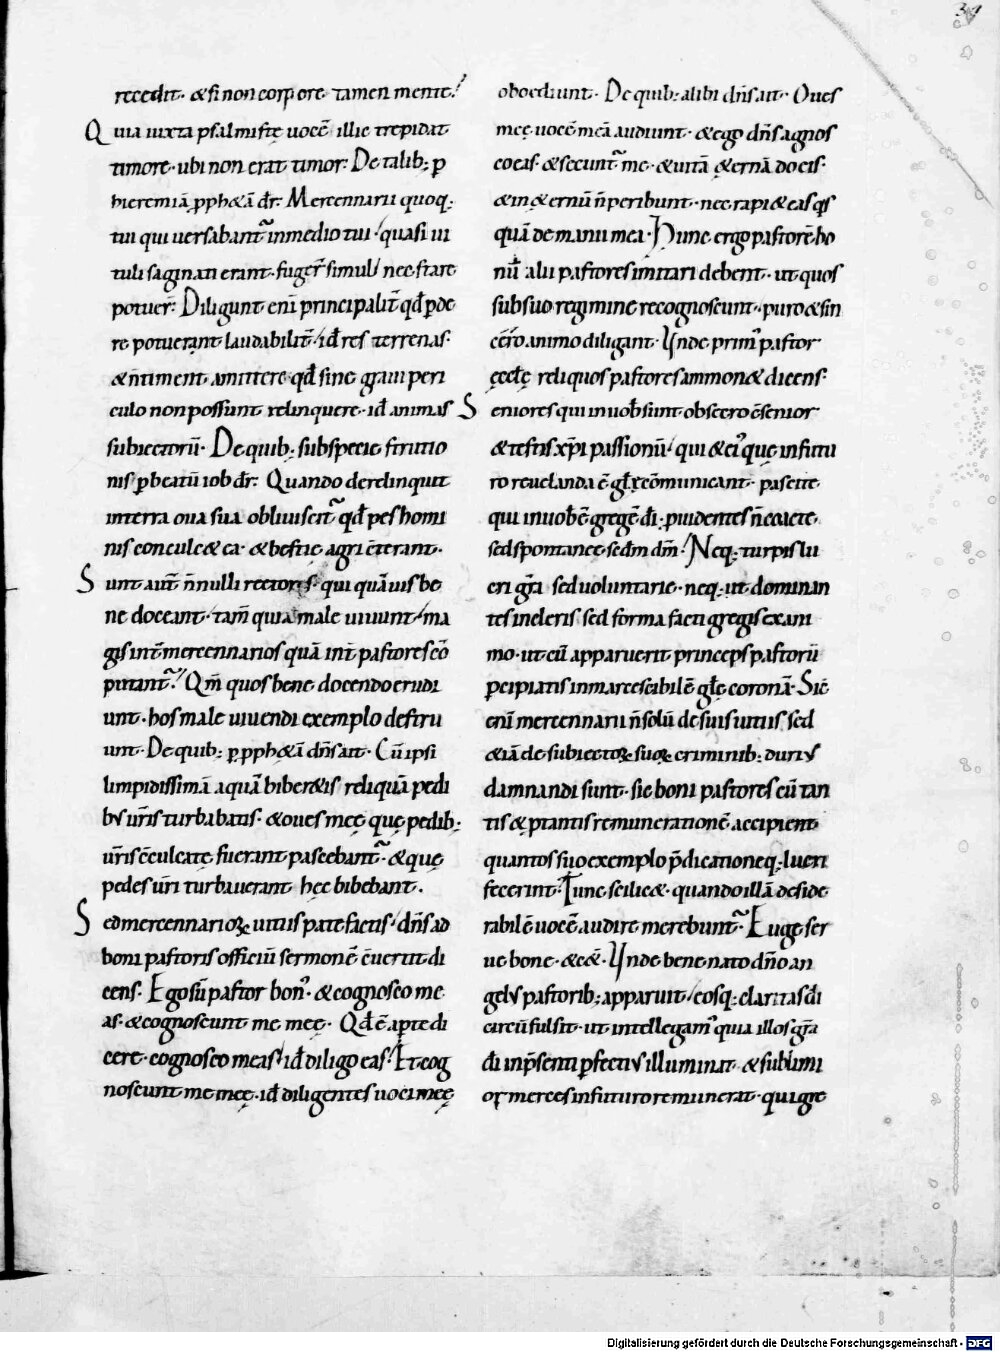 34
recedit. & si non corpore tamen mente.
Quia iuxta psalmistę uocē illic trepidat
timore. ubi non erat timor. De talib; ꝑ
hieremiā ꝓph&ā dr̄. Mercennarii quoq;
tui qui uersabant̃ in medio tui quasi ui
tuli saginati erant. fuger̄ simul nec stare
potuer̄. Diligunt eni principalit̄ qđ ꝑde
re potuerant laudabilit̄ / id res terrenas.
& ñ timent amittere qđ sine graui peri
culo non possunt relinquere. id animas
subiectorū. De quib; sub specie strutio
nis ꝑ beatū iob dr̄. Quando derelinquit
in terra oua sua obliuiscit̃ qđ pes homi
nis conculc& ea. & bestię agri c̄terant.
Sunt aut̄ ñnulli rectores. qui quāuis be
ne doceant. tam̄ quia male uiuunt / ma
gis int̄ mercennarios quā int̄ pastores cō
putant̃. Qm̄ quos bene docendo erudi
unt. hos male uiuendi exemplo destru
unt. De quib; ꝑ ꝓph&ā dn̄s ait. Cū ipsi
limpidissimā aquā biber&is reliquā pedi
bus ur̄is turbabatis. & oues męę quę pedib;
ur̄is c̄culcatę fuerant pascebant̃. & quę
pedes ur̄i turbauerant hęc bibebant.
Sed mercennarioꝝ uitiis patefactis / dn̄s ad
boni pastoris officiū sermonē c̄uertit di
cens. Ego sū pastor bon᾿. & cognosco me
as. & cognoscunt me męę. Qđ ē aperte di
cere. cognosco meas / id diligo eas. Et cog
noscunt me męę. id diligentes uoci męę
oboediunt. De quib; alibi dn̄s ait. Oues
męę uocē meā audiunt. & ego dn̄s agnos
co eas. & secunt̃ me. & uitā &ernā do eis.
& in &ernū ñ peribunt. nec rapi& eas qs
quā de manu mea. Hunc ergo pastorē bo
nū alii pastores imitari debent. ut quos
sub suo regimine recognoscunt / puro & sin
cero animo diligant. Unde prim᾿ pastor
ęcclę reliquos pastores ammon& dicens.
Seniores qui in uob sunt obsecro c̄senior
& testis xp̄i passionū / qui & ei᾿ quę in futu
ro reuelanda ē glę c̄omunicant. pascite
qui in uob ē gregē di. ꝓuidentes ñ coacte
sed spontanee secdm dm. Neq; turpis lu
cri gra sed uoluntarie. neq; ut dominan
tes in cleris sed forma facti gregis ex ani
mo. ut cū apparuerit princeps pastorū
percipiatis inmarcescibilē glę coronā. Sic
eni mercennarii ñ solū de suis uitiis sed
&iā de subiectoꝝ suoꝝ criminib; durius
damnandi sunt. sic boni pastores cū tan
tis & ptantis remunerationē accipient
quantos suo exemplo p̄dicationeq; lucri
fecerint. Tunc scilic&. quando illā deside
rabilē uocē audire merebunt̃. Euge ser
ue bone. & c&. Unde bene nato dn̄o an
gelus pastorib; apparuit / eosq; claritas di
circūfulsit. ut intellegam᾿ quia illos gra
di in p̄senti ꝑfectius illuminat. & sublimi
or merces in futuro remunerat. qui gre
Digitalisierung gefördert durch die Deutsche Forschungsgemeinschaft - DFG